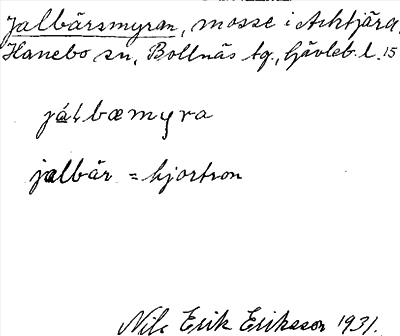 Jalbärsmyran, mosse i Acktjära,
Hanebo sn, Bollnäs tg., Gävleb. l. 15
jálbæmyra
jalbär = hjortron
Nils Erik Eriksson 1931.